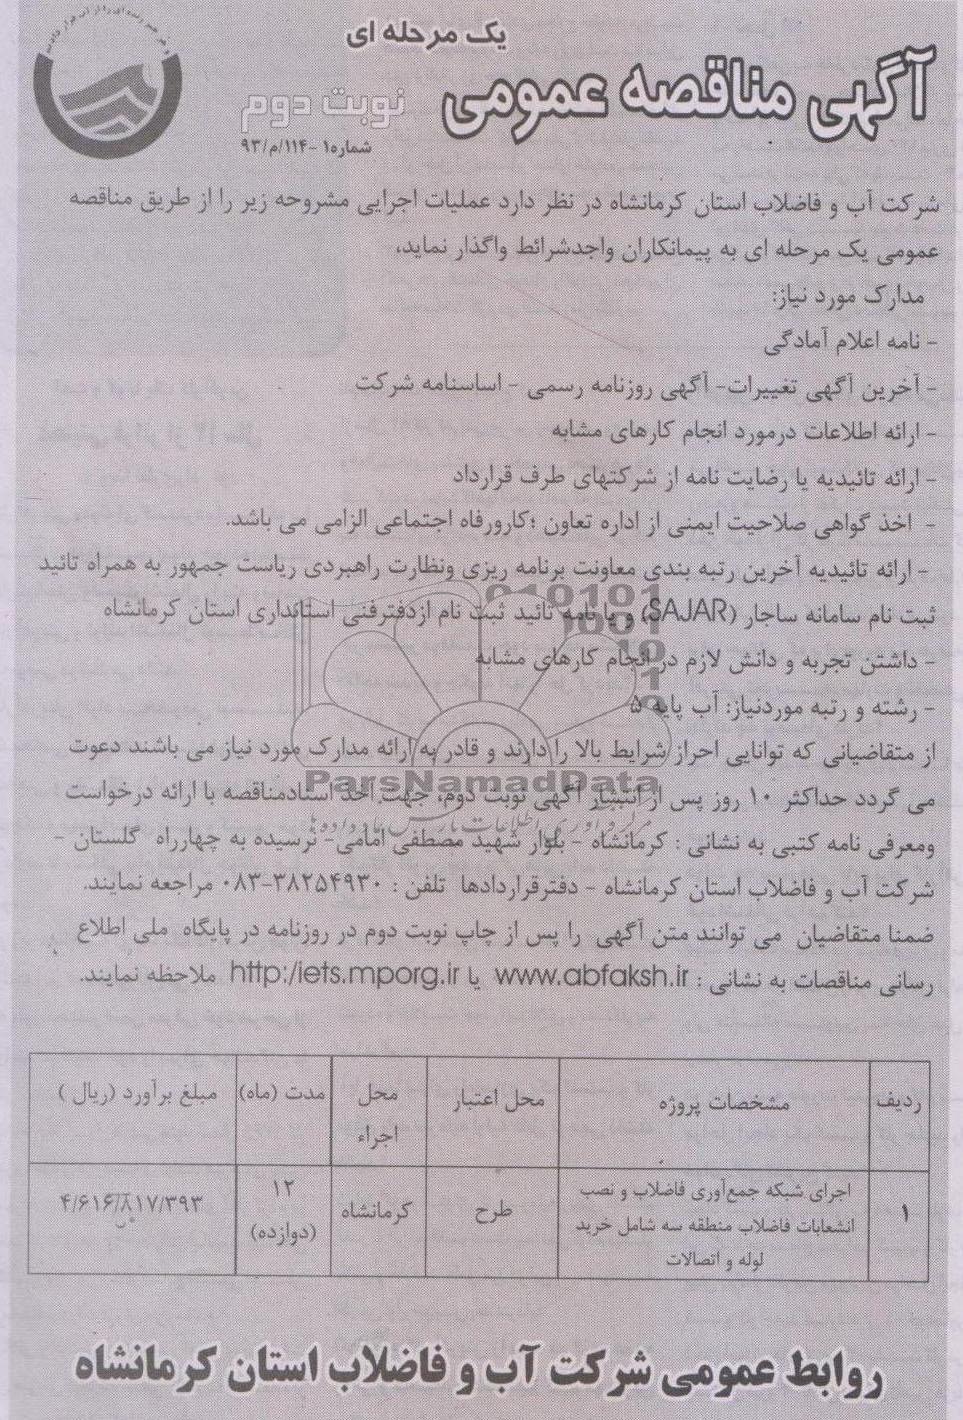 یک مرحله ای
آگهی مناقصه عمومی
نوبت دوم
شماره۱-۱۱۴/م/۹۳
شرکت آب و فاضلاب استان کرمانشاه در نظر دارد عملیات اجرایی مشروحه زیر را از طریق مناقصه
عمومی یک مرحله ای به پیمانکاران واجدشرائط واگذار نماید،
مدارک مورد نیاز:
- نامه اعلام آمادگی
- آخرین آگهی تغییرات- آگهی روزنامه رسمی - اساسنامه شرکت
- ارائه اطلاعات درمورد انجام کارهای مشابه
- ارائه تائیدیه یا رضایت نامه از شرکتهای طرف قرارداد
- اخذ گواهی صلاحیت ایمنی از اداره تعاون ؛کارورفاه اجتماعی الزامی می باشد.
- ارائه تائیدیه آخرین رتبه بندی معاونت برنامه ریزی ونظارت راهبردی ریاست جمهور به همراه تائید
ثبت نام سامانه ساجار (SAJAR) و یا نامه تائید ثبت نام ازدفترفنی استانداری استان کرمانشاه
- داشتن تجربه و دانش لازم در انجام کارهای مشابه
- رشته و رتبه موردنیاز: آب پایه ۵
از متقاضیانی که توانایی احراز شرایط بالا را دارند و قادر به ارائه مدارک مورد نیاز می باشند دعوت
ParsNamadData
می گردد حداکثر ۱۰ روز پس از انتشار آگهی نوبت دوم، جهت اخذ اسنادمناقصه با ارائه درخواست
ومعرفی نامه کتبی به نشانی : کرمانشاه - بلوار شهید مصطفی امامی- نرسیده به چهارراه گلستان -
شرکت آب و فاضلاب استان کرمانشاه - دفترقراردادها تلفن : ۳۸۲۵۴۹۳۰-۰۸۳ مراجعه نمایند.
ضمنا متقاضیان می توانند متن آگهی را پس از چاپ نوبت دوم در روزنامه در پایگاه ملی اطلاع
رسانی مناقصات به نشانی : www.abfaksh.ir یا http:/iets.mporg.ir ملاحظه نمایند.
ردیف مشخصات پروژه محل اعتبار محل اجراء مدت (ماه) مبلغ برآورد (ریال )
۱ اجرای شبکه جمع‌آوری فاضلاب و نصب انشعابات فاضلاب منطقه سه شامل خرید لوله و اتصالات طرح کرمانشاه ۱۲ (دوازده) ۴/۶۱۶/۸۱۷/۳۹۳
روابط عمومی شرکت آب و فاضلاب استان کرمانشاه